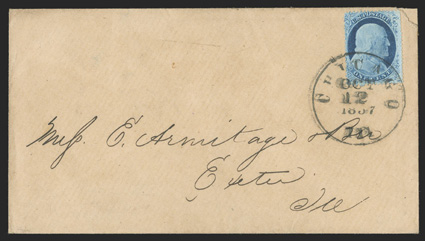 U.S. POSTAGE
ONE CENT
CHICAGO
OCT
12
1857
Ill.
E. Armitage
Exeter
Ill